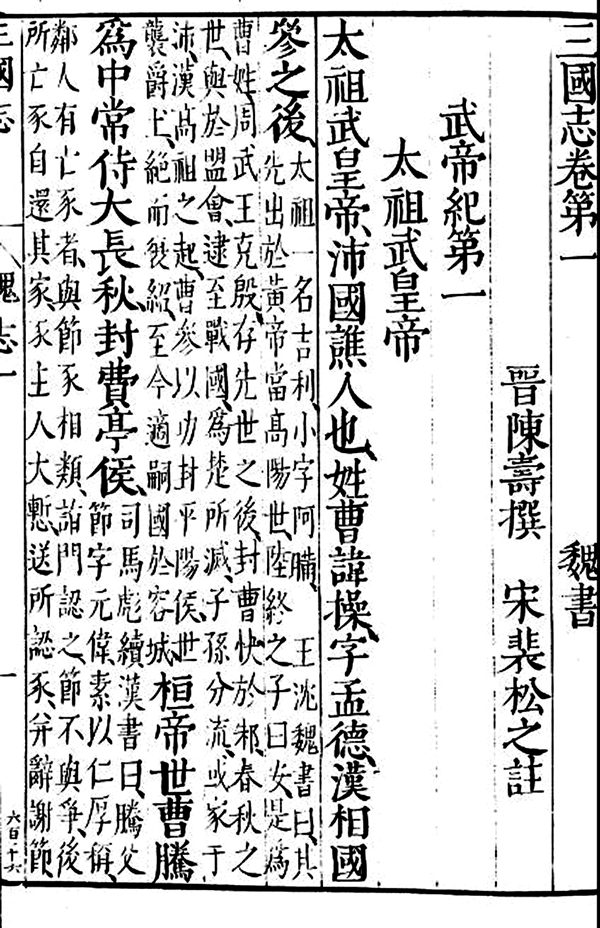 三國志卷第一　魏書
晉陳壽撰　宋裴松之註
武帝紀第一
太祖武皇帝
太祖武皇帝、沛國譙人也、姓曹諱操、字孟德、漢相國
參之後、
太祖一名吉利、小字阿瞞、王沈魏書曰、其
先出於黃帝當高陽世、陸終之子曰安、是爲
曹姓、周武王克殷、存先世之後、封曹俠於邾、春秋之
世、與於盟會、逮至戰國、爲楚所滅、子孫分流、或家于
沛、漢高祖之起、曹參以功封平陽侯、世
襲爵土、絕而復紹、至今適嗣國於容城、
桓帝世曹騰
爲中常侍大長秋、封費亭侯、
司馬彪續漢書曰、騰父
節字元偉、素以仁厚稱、
鄰人有亡豕者、與節豕相類、詣門認之、節不與爭、後
所亡豕自還其家、豕主人大慙、送所認豕、幷辭謝節、
三國志
魏志一
一
六百十六